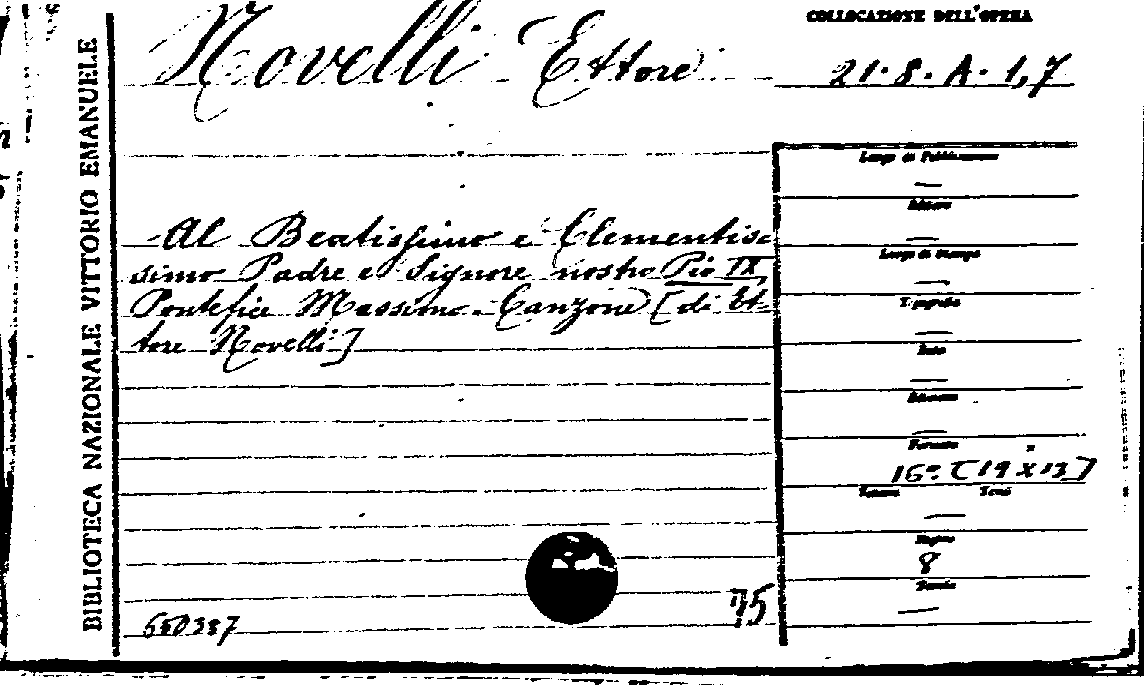 COLLOCAZIONE DELL'OPERA
Novelli Ettore
21.8.A.1,7
BIBLIOTECA NAZIONALE VITTORIO EMANUELE
Luogo di Pubblicazione
—
Editore
—
Luogo di stampa
—
Tipografia
—
Data
—
Edizione
—
Formato
16º. [19 x 13]
Volume Tomi
—
Pagine
8
Tavole
—
Al Beatissimo e Clementis-
simo Padre e Signore nostro Pio IX
Pontefice Massimo. Canzone [di Et-
tore Novelli]
680387
75